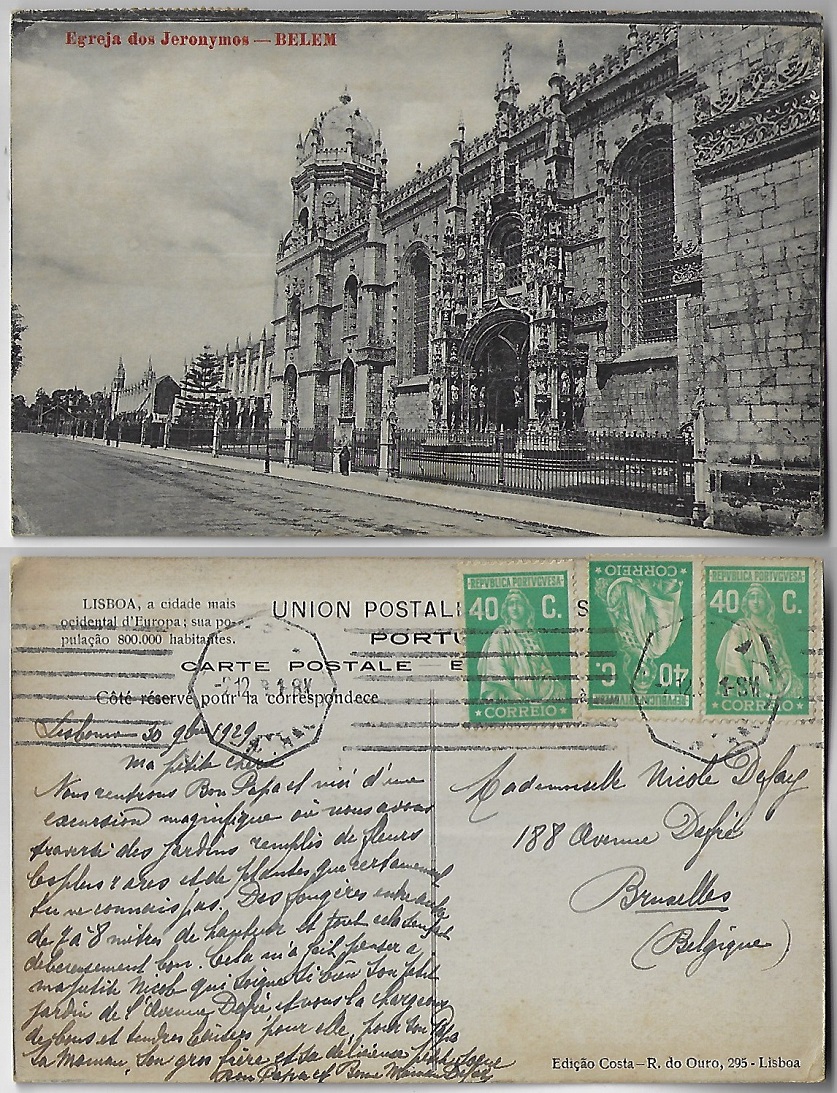 Egreja dos Jeronymos — BELEM
LISBOA, a cidade mais
ocidental d'Europa; sua po-
pulação 800.000 habitantes.
UNION POSTALE S
PORTU
CARTE POSTALE — E
Côté réservé pour la correspondece
REPVBLICA PORTVGVESA
40 C.
CORREIO
REPVBLICA PORTVGVESA
40 C.
CORREIO
REPVBLICA PORTVGVESA
40 C.
CORREIO
Lisbonne 30 9bre 1929
Ma petite chérie
Nous rentrons Bon Papa et moi d'une
excursion magnifique où nous avons
traversé des jardins remplis de fleurs
les plus rares et de plantes que certainement
tu ne connais pas. Des fougères entre autre
de 7 à 8 mètres de hauteur et tout cela
délicieusement bon. Cela m'a fait penser à
ma petite Nicole qui soigne si bien son petit
jardin de l'Avenue Defré et nous la chargeons
de bons et tendres baisers pour elle, pour son Papa
sa Maman, son gros frère et sa délicieuse petite
Bon Papa et Bonne Maman Defay
Mademoiselle Nicole Defay
188 Avenue Defré
Bruxelles
(Belgique)
Edição Costa—R. do Ouro, 295 - Lisboa